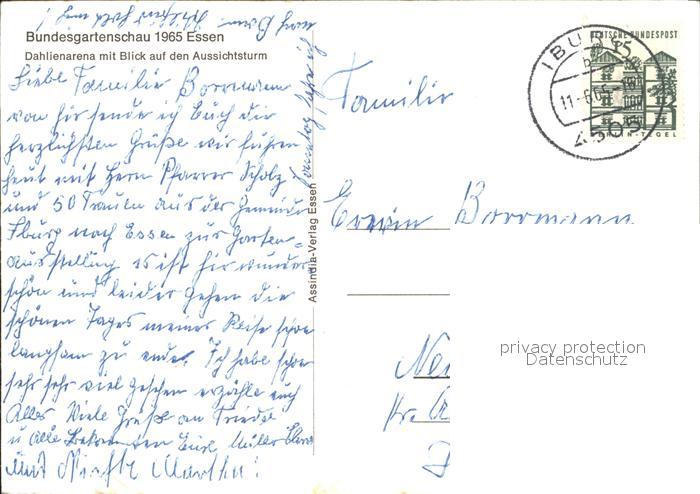 Bundesgartenschau 1965 Essen
Dahlienarena mit Blick auf den Aussichtsturm
Liebe Familie Borrmann
von hir sende ich Euch die
herzlichsten Grüße wir fuhren
heut mit Herrn Pfarrer Scholz
und 50 Frauen aus der Gemeinde
Iburg nach Essen zur Garten-
ausstellung es ist hir wunder
schön und leider gehen die
schönen Tages meiner Reise schon
langsam zu ende. Ich habe schon
sehr sehr viel gesehen erzähle euch
Alles Viele Grüße an Friedel
u alle Bekannten Eure
Assindia-Verlag Essen
Familie
Erwin Borrmann
Kr.
IBURG
11.-6.65
4505
DEUTSCHE BUNDESPOST
15
BERLIN-TEGEL
privacy protection
Datenschutz